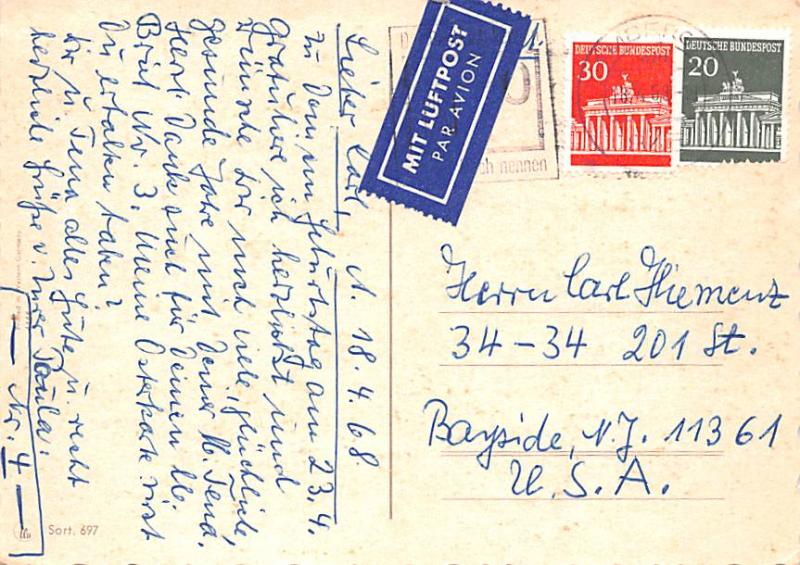 A. 18.4.68
Lieber Carl,
zu Deinem Geburtstag am 23.4.
gratuliere ich herzlichst und
wünsche Dir noch viele, glückliche,
gesunde Jahre mit Deiner lb. Tena.
Herzl. Dank auch für Deinen lb.
Brief Nr. 3. Meine Osterkarte wirst
Du erhalten haben?
Dir u. Tena alles Gute u. recht
herzliche Grüße v. Eurer Paula.
Nr. 4
MIT LUFTPOST
PAR AVION
nennen
DEUTSCHE BUNDESPOST
30
DEUTSCHE BUNDESPOST
20
Herrn Carl Hiemenz
34-34 201 St.
Bayside, N.Y. 11361
U.S.A.
Sort. 697